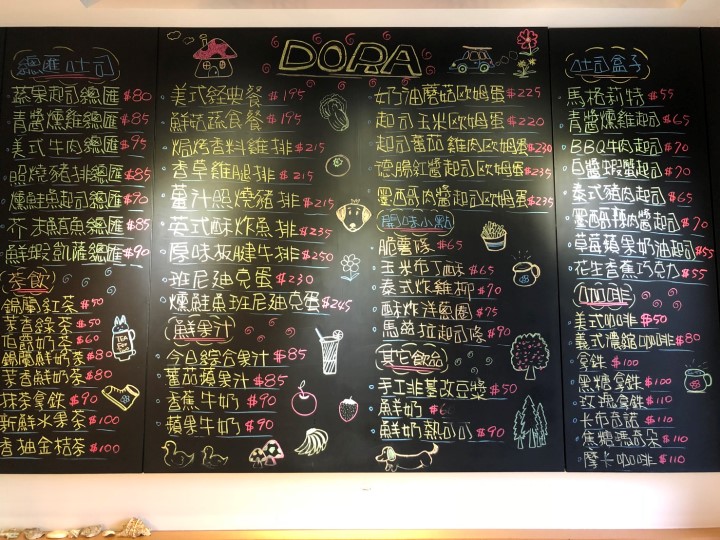 總匯吐司
蔬果起司總匯 $80
青醬燻雞總匯 $85
美式牛肉總匯 $95
照燒豬排總匯 $85
燻鮭魚起司總匯 $90
芥末鮪魚總匯 $85
鮮蝦凱薩總匯 $90
茶飲
錫蘭紅茶 $50
茉香綠茶 $50
伯爵奶茶 $60
錫蘭鮮奶茶 $80
茉香鮮奶茶 $80
抹茶拿鐵 $90
新鮮水果茶 $100
香柚金桔茶 $100
DORA
美式經典餐 $195
鮮菇蔬食餐 $195
焗烤香料雞排 $215
香草雞腿排 $215
薑汁照燒豬排 $215
英式酥炸魚排 $235
原味板腱牛排 $250
班尼迪克蛋 $230
燻鮭魚班尼迪克蛋 $245
鮮果汁
今日綜合果汁 $85
蕃茄蘋果汁 $85
香蕉牛奶 $90
蘋果牛奶 $90
奶油蘑菇歐姆蛋 $225
起司玉米歐姆蛋 $220
起司蕃茄雞肉歐姆蛋 $230
德腸紅醬起司歐姆蛋 $235
墨西哥肉醬起司歐姆蛋 $235
開味小點
脆薯隊 $65
玉米布丁酥 $65
泰式炸雞柳 $70
酥炸洋蔥圈 $75
馬茲拉起司條 $90
其它飲品
手工非基改豆漿 $50
鮮奶 $60
鮮奶熱可可 $90
吐司盒子
馬格莉特 $55
青醬燻雞起司 $65
BBQ牛肉起司 $70
白醬蝦蟹起司 $70
泰式豬肉起司 $65
墨西哥辣肉醬起司 $70
草莓蘋果奶油起司 $55
花生香蕉巧克力 $55
咖啡
美式咖啡 $50
義式濃縮咖啡 $80
拿鐵 $100
黑糖拿鐵 $110
玫瑰拿鐵 $110
卡布奇諾 $110
焦糖瑪琪朵 $110
摩卡咖啡 $110